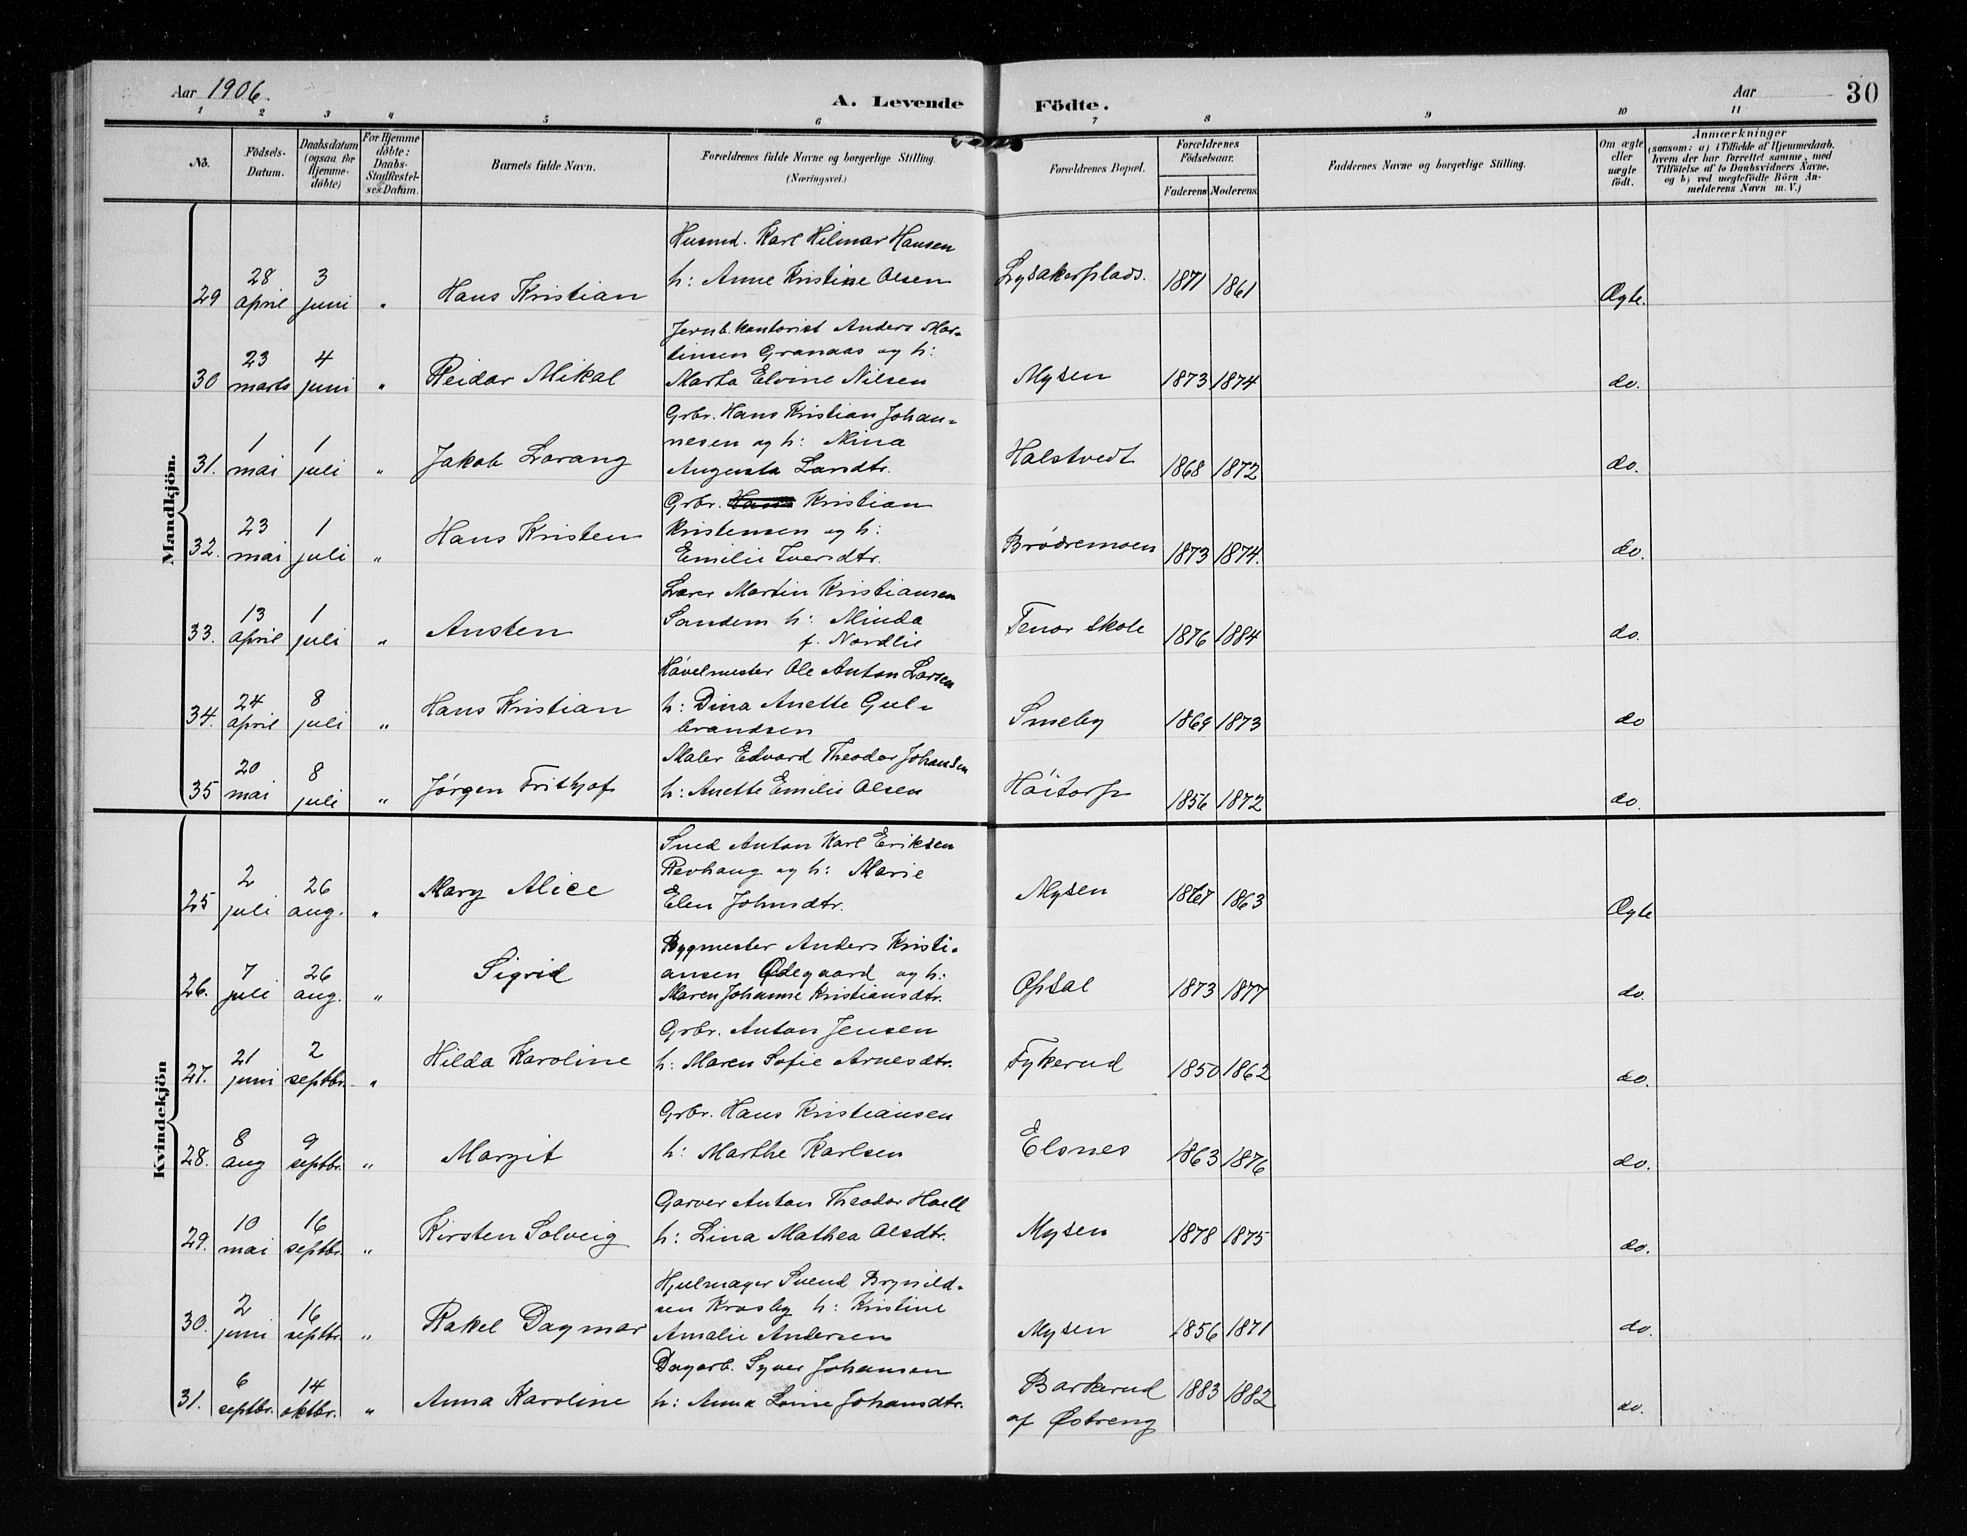 Aar 1906.
A. Levende Födte.
Aar
30
1 2 3 4 5 6 7 8 9 10 11
No.
Födsels-Datum.
Daabsdatum (ogsaa for Hjemmedöbte)
For Hjemmedöbte: Daabs-Stadfestelses Datum.
Barnets fulde Navn.
Forældrenes fulde Navne og borgerlige Stilling. (Næringsvei.)
Forældrenes Bopæl.
Forældrenes Födselsaar.
Faderens Moderens
Faddernes Navne og borgerlige Stilling.
Om ægte eller uægte født.
Anmærkninger
(saasom: a) i Tilfælde af Hjemmedaab, hvem der har forrettet samme, med Tilföielse af to Daabsvidners Navne, og b) ved uægtefödte Börn Anmelderens Navn m. V.)
Mandkjön.
29 28 april 3 juni " Hans Kristian Husmd. Karl Hilmar Hansen h: Anne Kristine Olsen Lysakerplads. 1871 1861 Ægte.
30 23 marts 4 juni " Reidar Mikal Jernb.kontorist Anders Martinsen Granaas og h: Marta Elvine Nilsen Mysen 1873 1874 do.
31. 1 mai 1 juli " Jakob Lorang Grbr. Hans Kristian Johannesen og h: Mina Augusta Larsdtr. Halstvedt 1868 1872 do.
32. 23 mai 1 juli " Hans Kristen Grbr. Hans Kristian Kristensen og h: Emilie Iversdtr. Brødremoen 1873 1874. do.
33. 13 april 1 juli " Austen Lærer Martin Kristiansen Sandem h: Minda f. Nordlie Tenor skole 1876 1884 do.
34. 24 april 8 juli " Hans Kristian Høvelmester Ole Anton Larsen h: Dina Anette Gulbrandsen Smeby 1869 1873 do
35 20 mai 8 juli " Jørgen Frithjof Maler Edvard Theodor Johansen h: Anette Emilie Olsen Höitorp 1856 1872 do.
Kvindekjön
25 2 juli 26 aug. " Mary Alice Smed Anton Karl Eriksen Revhaug og h: Marie Elen Johnsdtr. Mysen 1867 1863 Ægte
26. 7 juli 26 aug. " Sigrid Bygmester Anders Kristiansen Ødegaard og h: Maren Johanne Kristiansdtr. Opsal 1873 1877 do.
27. 21 juni 2 septbr. " Hilda Karoline Grbr. Anton Jensen h: Maren Sofie Arnesdtr. Fykerud 1850 1862 do.
28. 8 aug 9 septbr. " Margit Grbr. Hans Kristiansen h: Marthe Karlsen Elsnes 1863 1876 do.
29. 10 mai 16 septbr. " Kirsten Solveig Garver Anton Theodor Hoell h: Lina Mathea Olsdtr. Mysen 1878 1875 do.
30. 2 juni 16 septbr. " Rakel Dagmar Hjulmager Svend Brynildsen Krosby h: Kristine Amalie Andersen Mysen 1856 1871 do.
31. 6 septbr. 14 oktbr. " Anna Karoline Dagarb. Syver Johansen h: Anna Lovise Johansdtr. Barkerud af Østreng 1883 1882 do.